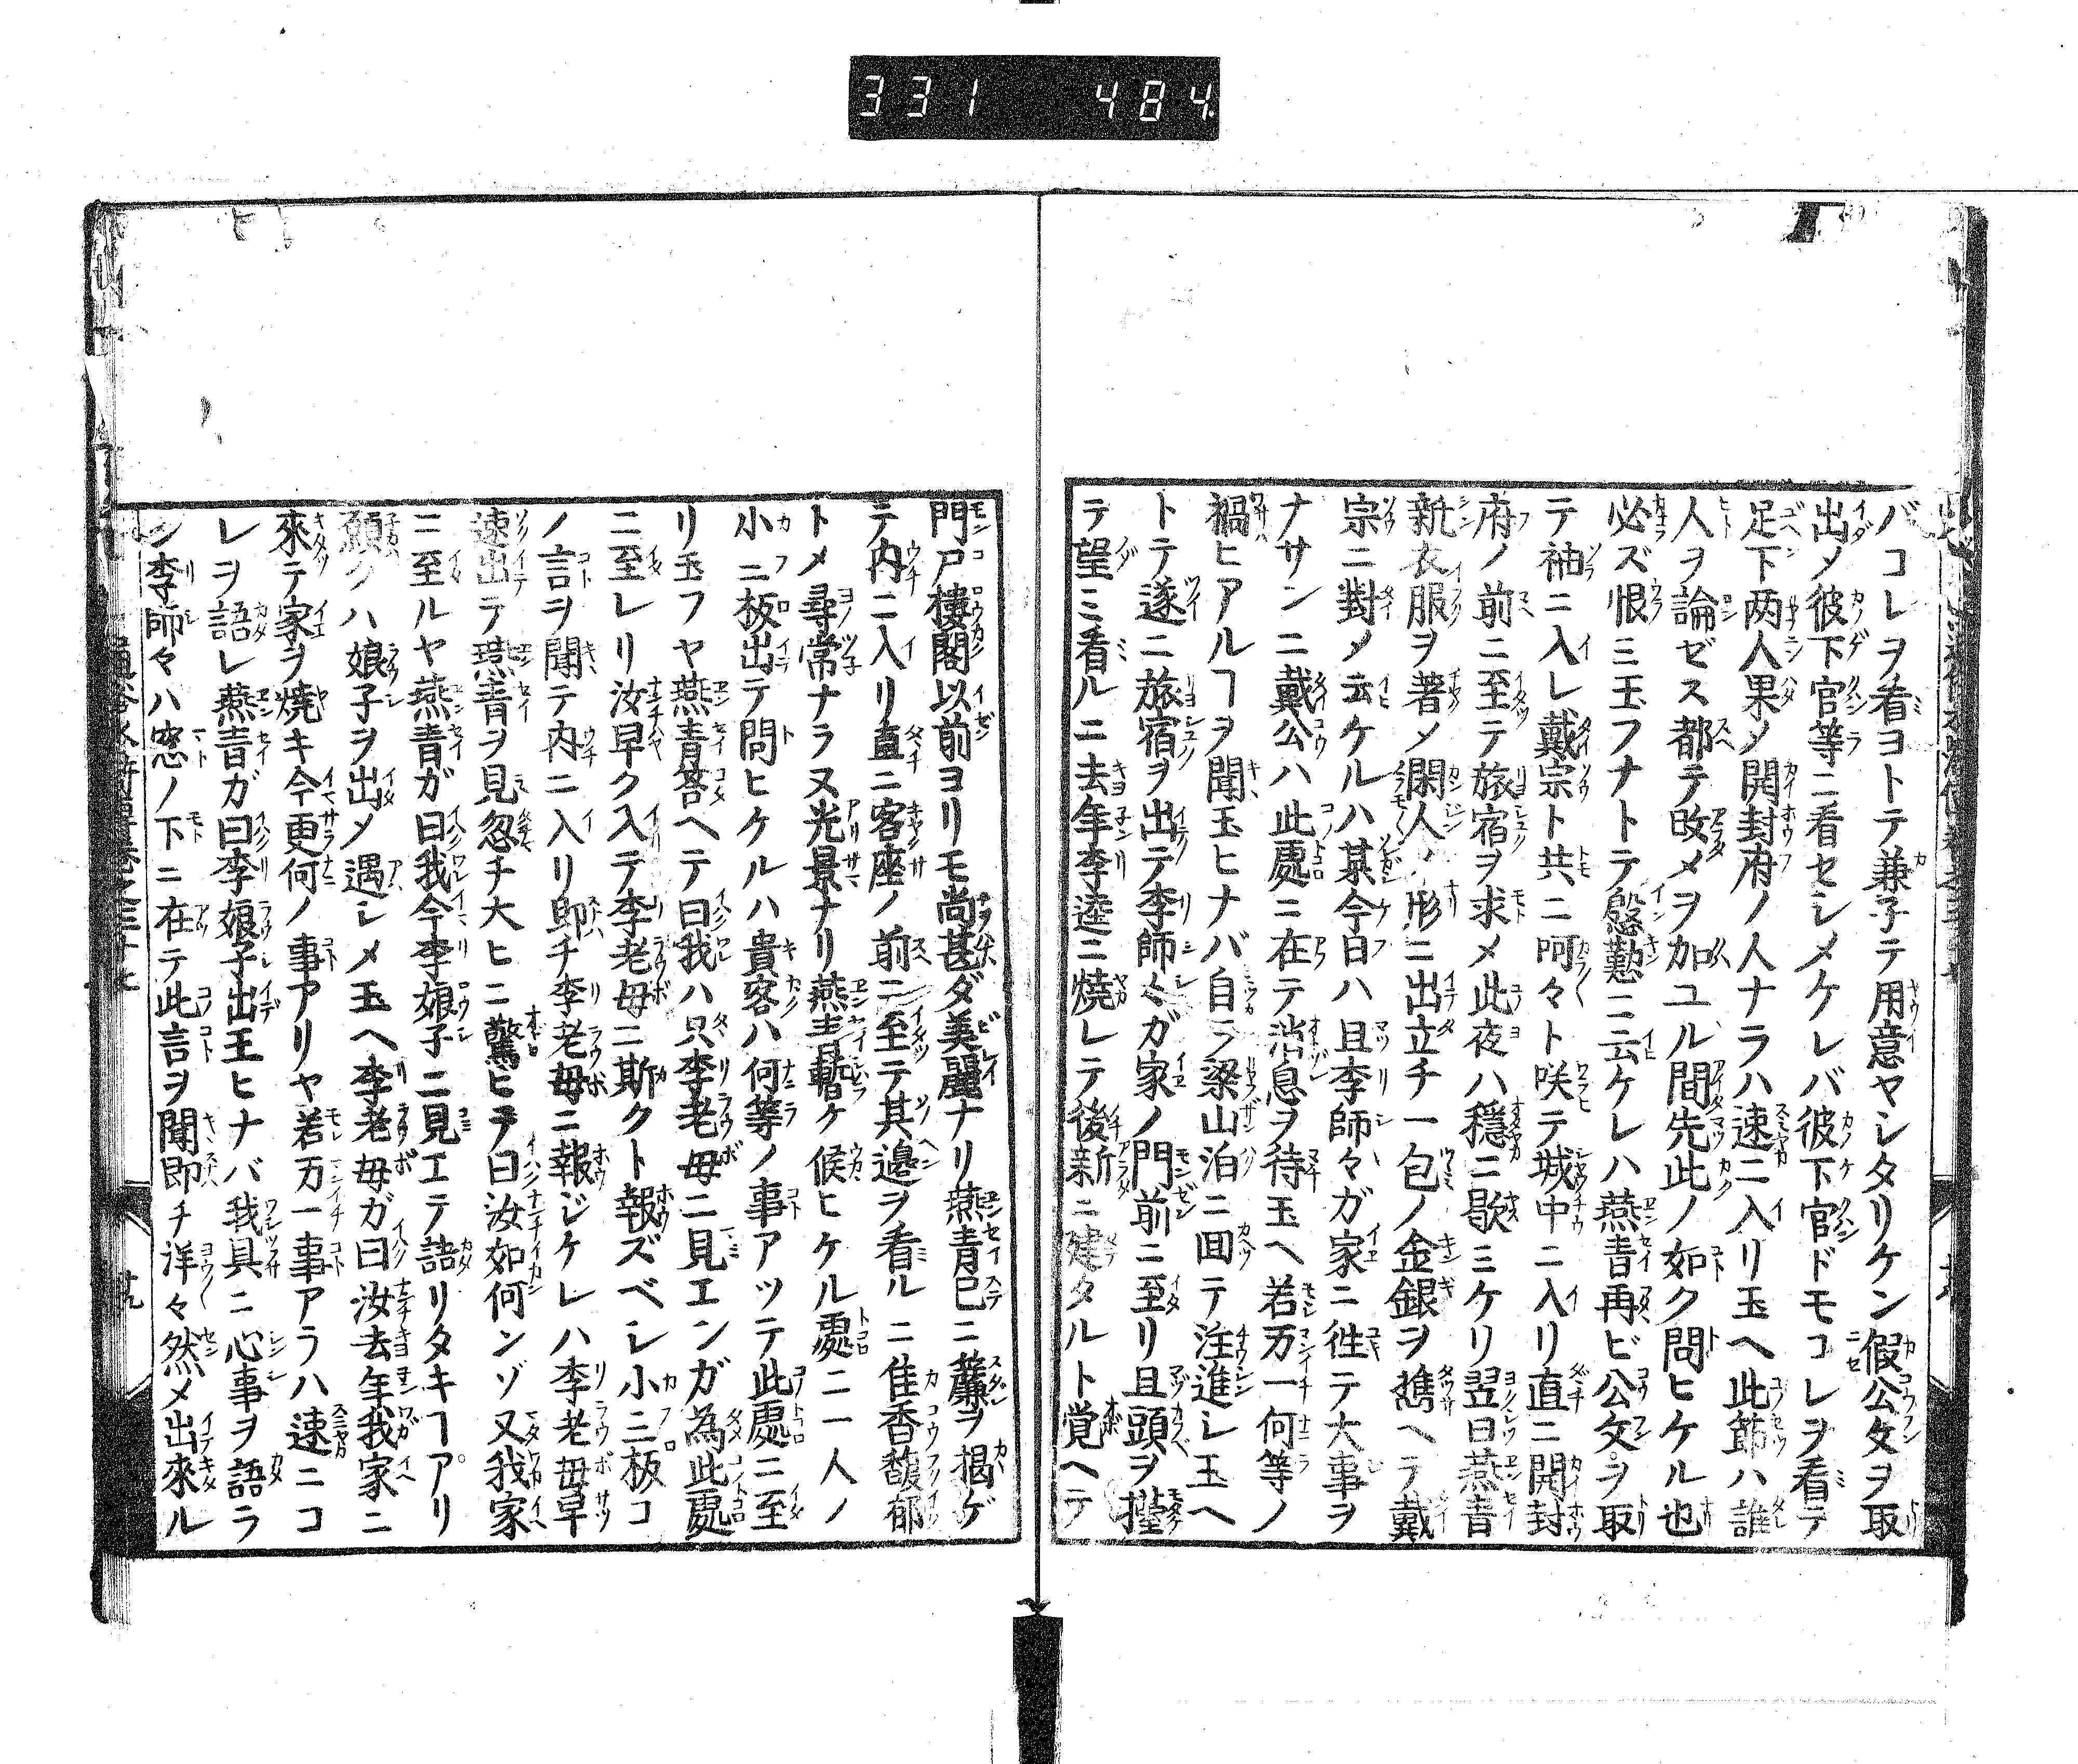 331 484.
バコレヲ看ヨトテ兼子テ用意ヤシタリケン假公文ヲ取
出メ彼下官等ニ看セシメケレバ彼下官ドモコレヲ看テ
足下两人果メ開封府ノ人ナラハ速ニ入リ玉ヘ此節ハ誰
人ヲ論ゼス都テ改メヲ加ユル間先此ノ如ク問ヒケル也
必ズ恨ミ玉フナトテ慇懃ニ云ケレハ燕青再ビ公文ヲ取
テ袖ニ入レ戴宗ト共ニ呵々ト咲テ城中ニ入リ直ニ開封
府ノ前ニ至テ旅宿ヲ求メ此夜ハ穏ニ歇ミケリ翌日燕青
新衣服ヲ著メ閑人ノ形ニ出立チ一包ノ金銀ヲ擕ヘテ戴
宗ニ對メ云ケルハ某今日ハ且李師々ガ家ニ徃テ大事ヲ
ナサンニ戴公ハ此處ニ在テ消息ヲ待玉ヘ若万一何等ノ
禍ヒアルヿヲ聞玉ヒナバ自ラ梁山泊ニ囬テ注進レ玉ヘ
トテ遂ニ旅宿ヲ出テ李師々ガ家ノ門前ニ至リ且頭ヲ擡
テ望ミ看ルニ去年李逵ニ燒レテ後新ニ建タルト覚ヘテ
門戸樓閣以前ヨリモ尚甚ダ美麗ナリ燕青已ニ簾ヲ掲ゲ
テ内ニ入リ直ニ客座ノ前ニ至テ其邊ヲ看ルニ佳香馥郁
トメ尋常ナラヌ光景ナリ燕青暫ク候ヒケル處ニ一人ノ
小ニ板出テ問ヒケルハ貴客ハ何等ノ事アツテ此處ニ至
リ玉フヤ燕青答ヘテ曰我ハ只李老母ニ見エンガ為此處
ニ至レリ汝早ク入テ李老母ニ斯クト報ズベレ小三板コ
ノ言ヲ聞テ内ニ入リ即チ李老母ニ報ジケレハ李老母早
速出テ燕青ヲ見忽チ大ヒニ驚ヒテ曰汝如何ンゾ又我家
ニ至ルヤ燕青ガ曰我今李娘子ニ見エテ語リタキヿアリ
願クハ娘子ヲ出メ遇シメ玉ヘ李老母ガ曰汝去年我家ニ
來テ家ヲ燒キ今更何ノ事アリヤ若万一事アラハ速ニコ
レヲ語レ燕青ガ曰李娘子出玉ヒナバ我具ニ心事ヲ語ラ
ン李師々ハ窓ノ下ニ在テ此言ヲ聞即チ洋々然メ出來ル